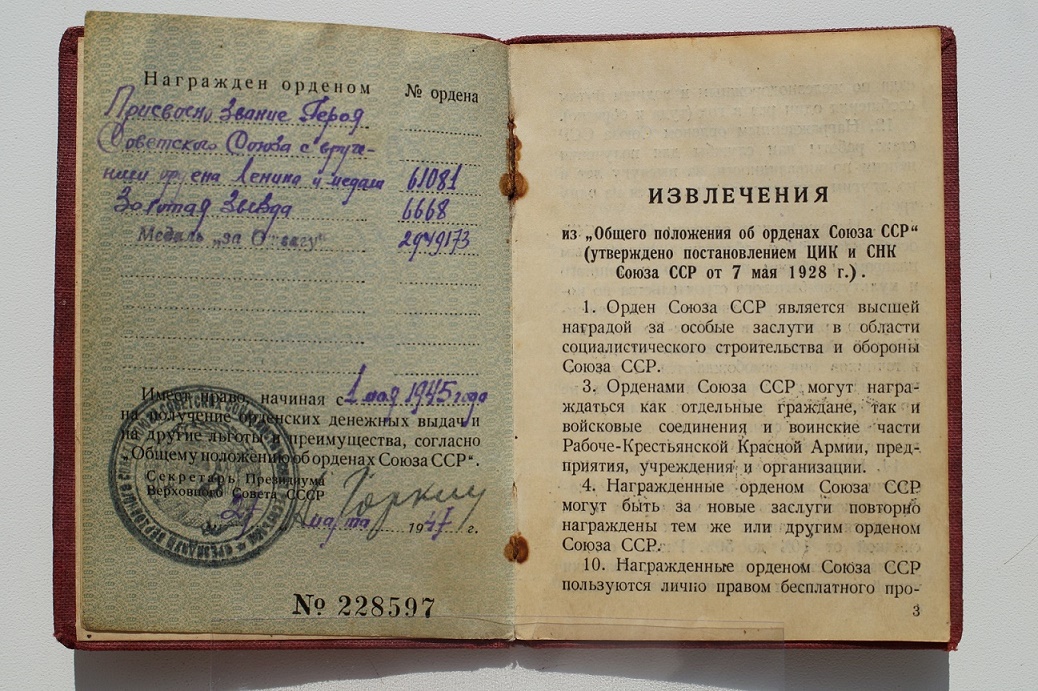 Награжден орденом № ордена
Присвоено Звание Героя
Советского Союза с вруче-
нием ордена Ленина и медали 61081
Золотая Звезда 6668
Медаль „за Отвагу“ 2949173
Имеет право, начиная с 1 мая 1945 года
на получение орденских денежных выдач и
на другие льготы и преимущества, согласно
„Общему положению об орденах Союза ССР“.
Секретарь Президиума
Верховного Совета СССР
Горкин
27 „ марта 1947 г.
№ 228597
ИЗВЛЕЧЕНИЯ
из „Общего положения об орденах Союза ССР“
(утверждено постановлением ЦИК и СНК
Союза ССР от 7 мая 1928 г.).
1. Орден Союза ССР является высшей
наградой за особые заслуги в области
социалистического строительства и обороны
Союза ССР.
3. Орденами Союза ССР могут награ-
ждаться как отдельные граждане, так и
войсковые соединения и воинские части
Рабоче-Крестьянской Красной Армии, пред-
приятия, учреждения и организации.
4. Награжденные орденом Союза ССР
могут быть за новые заслуги повторно
награждены тем же или другим орденом
Союза ССР.
10. Награжденные орденом Союза ССР
пользуются лично правом бесплатного про-
3